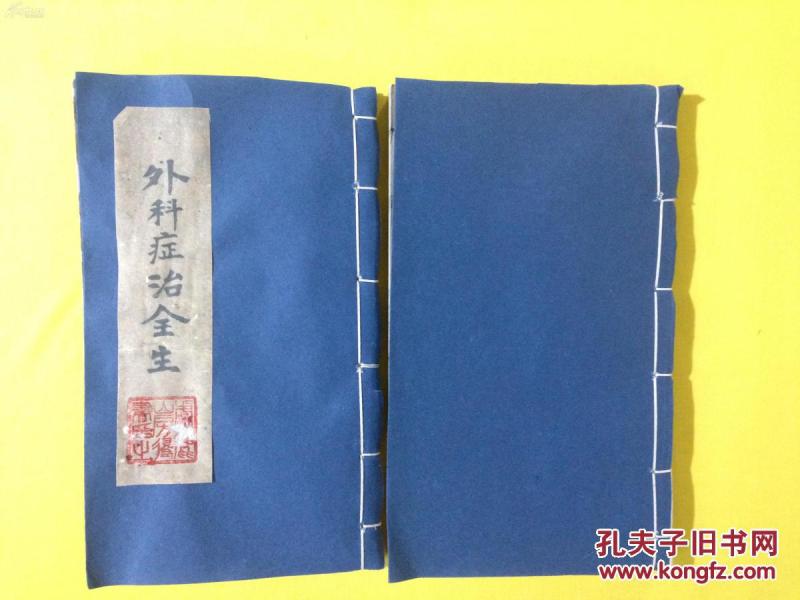 外科症治全生
孔夫子旧书网
www.kongfz.com